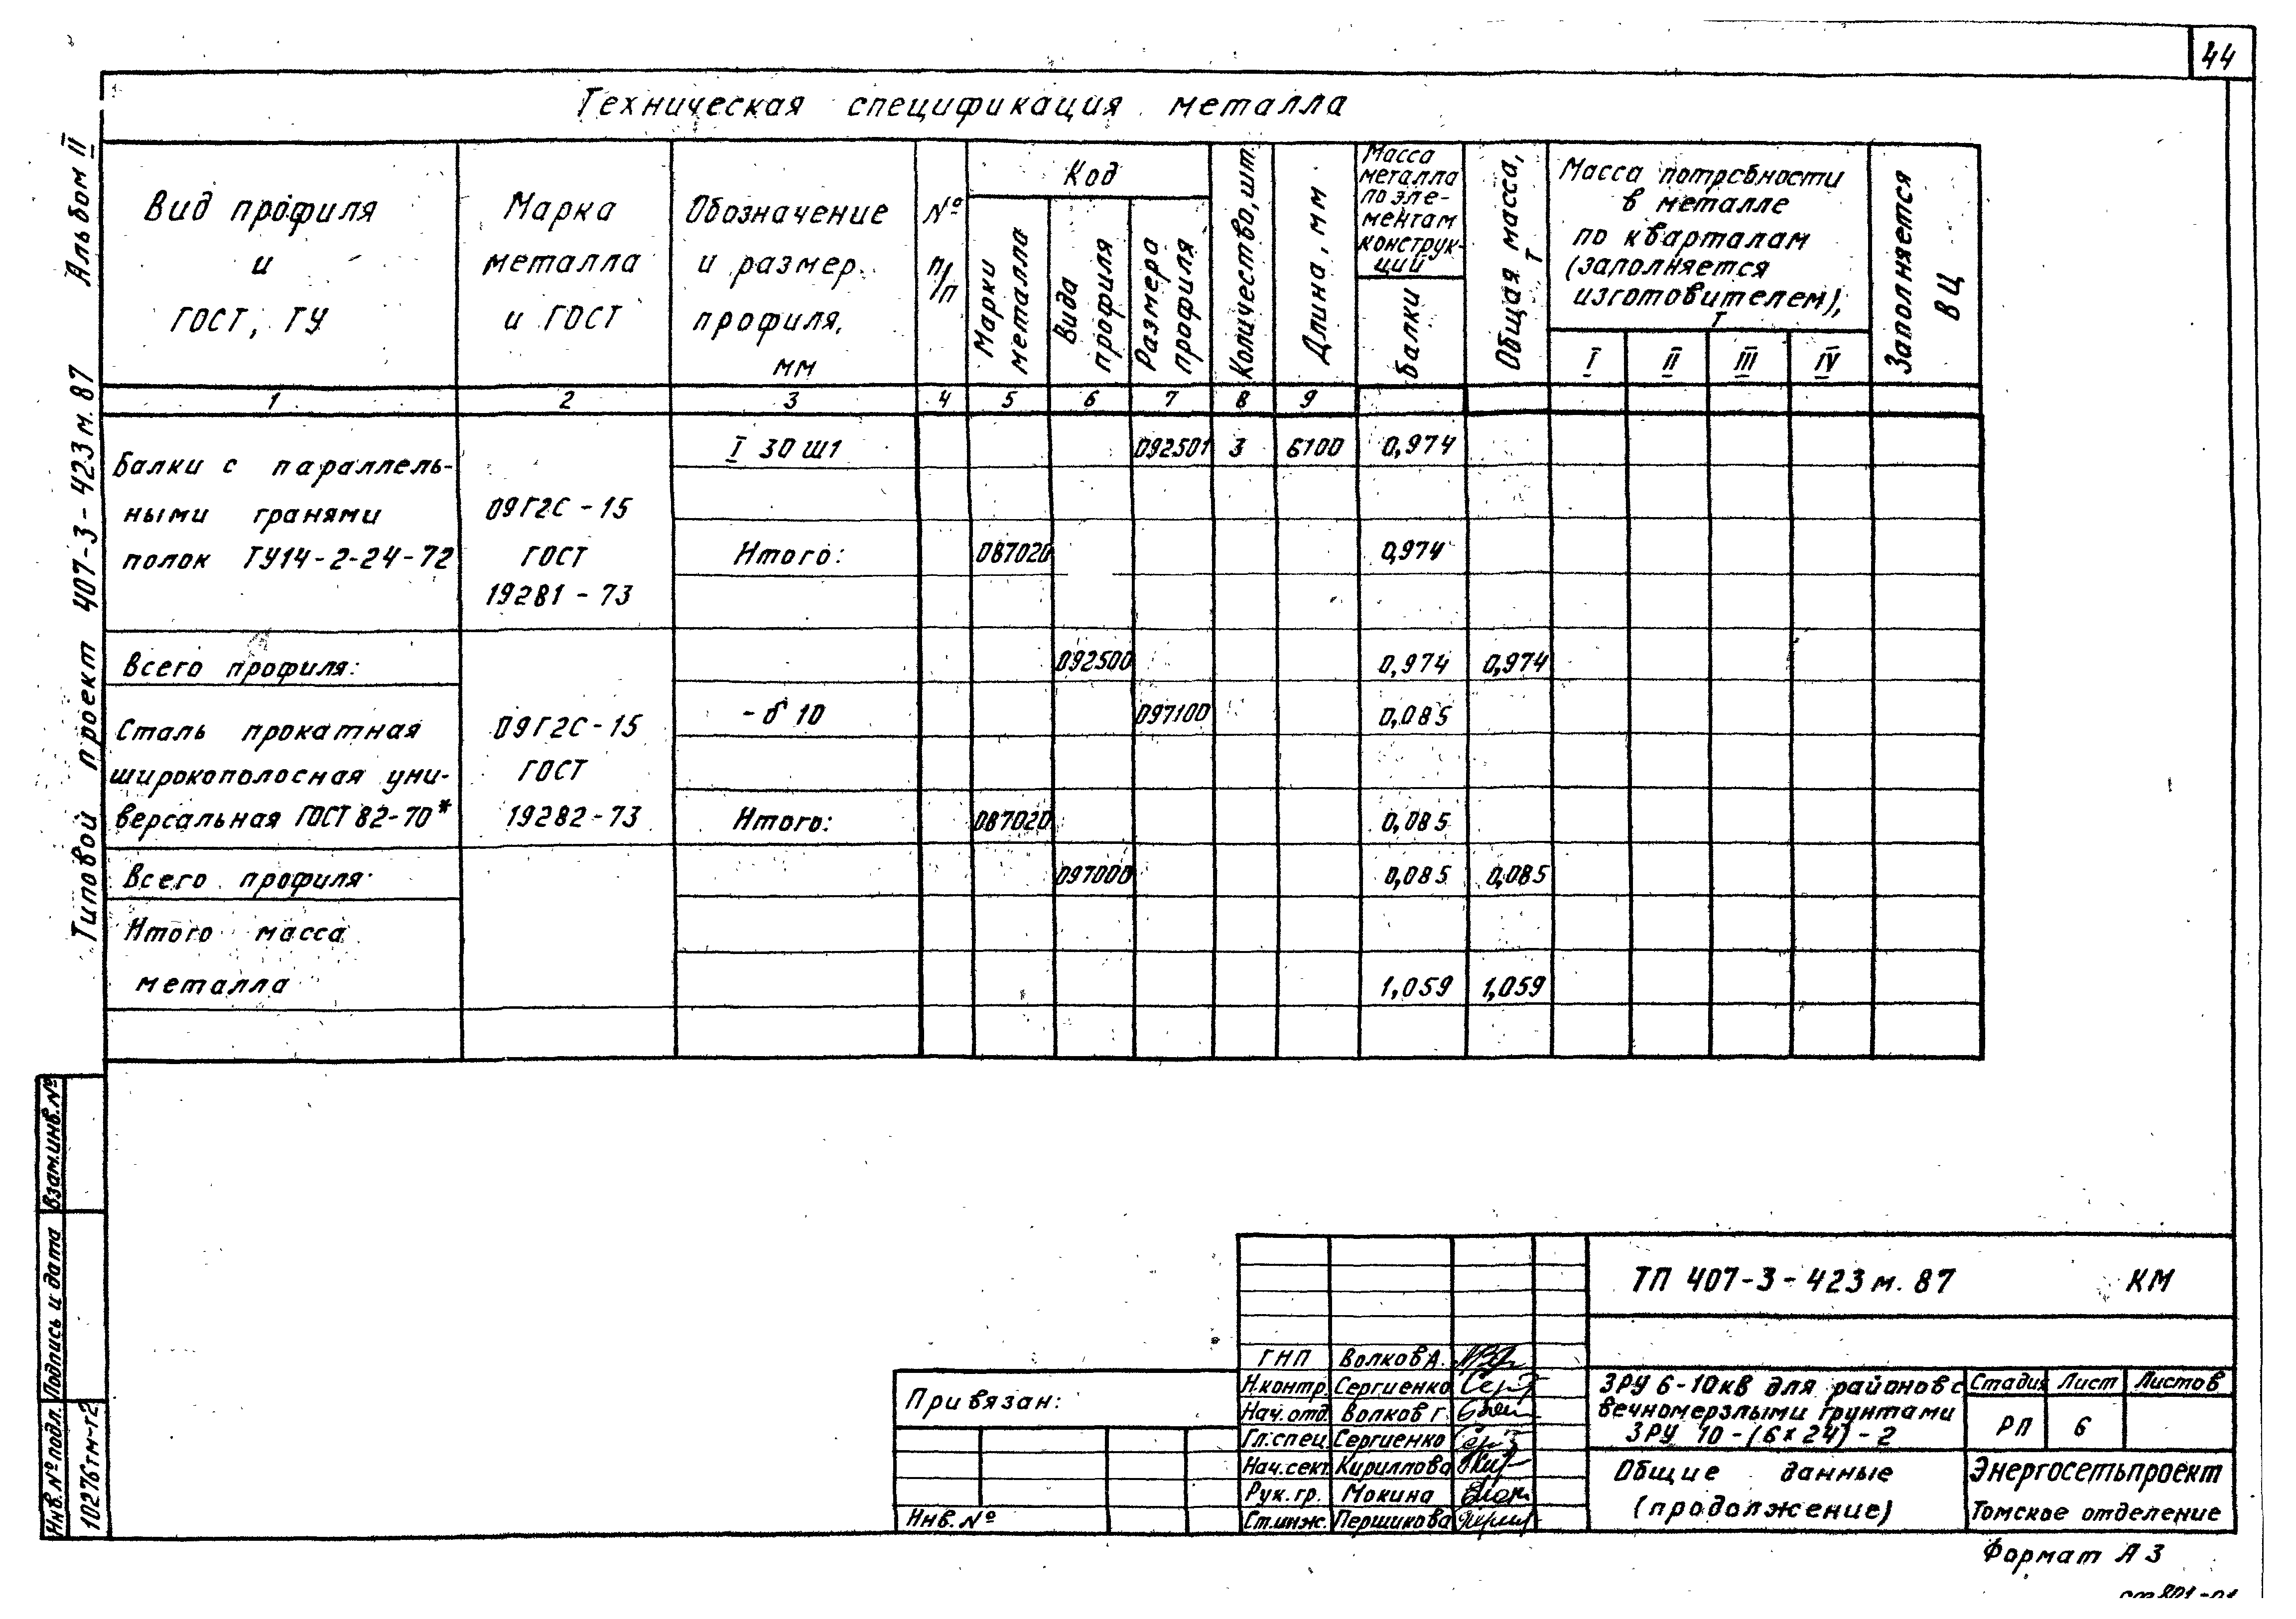 44
Техническая спецификация металла
Вид профиля
и
ГОСТ, ТУ
Марка
металла
и ГОСТ
Обозначение
и размер
профиля,
мм
№
п/п
Код
Марки
металла
Вида
профиля
Размера
профиля
Количество, шт.
Длина, мм
Масса
металла
по эле-
ментам
конструк-
ций
балки
Общая масса,
т
Масса потребности
в металле
по кварталам
(заполняется
изготовителем),
т
I II III IV
Заполняется
ВЦ
1 2 3 4 5 6 7 8 9
Балки с параллель-
ными гранями
полок ТУ14-2-24-72
09Г2С-15
ГОСТ
19281-73
I 30 Ш1 092501 3 6100 0,974
Итого: 087020 0,974
Всего профиля: 092500 0,974 0,974
Сталь прокатная
широкополосная уни-
версальная ГОСТ 82-70*
09Г2С-15
ГОСТ
19282-73
- δ 10 097100 0,085
Итого: 087020 0,085
Всего профиля: 097000 0,085 0,085
Итого масса
металла 1,059 1,059
Типовой проект 407-3-423м.87 Альбом II
Взам.инв.№
Подпись и дата
Инв.№подл.
10276тм-т2
Привязан:
Инв.№
ГИП Волков А.
Н.контр. Сергиенко
Нач.отд. Волков Г.
Гл.спец. Сергиенко
Нач.сект. Кириллова
Рук.гр. Мокина
Ст.инж. Першикова
ТП 407-3-423м.87 КМ
ЗРУ 6-10кВ для районов с
вечномерзлыми грунтами
ЗРУ 10-(6x24)-2
Стадия Лист Листов
РП 6
Общие данные
(продолжение)
Энергосетьпроект
Томское отделение
Формат А3